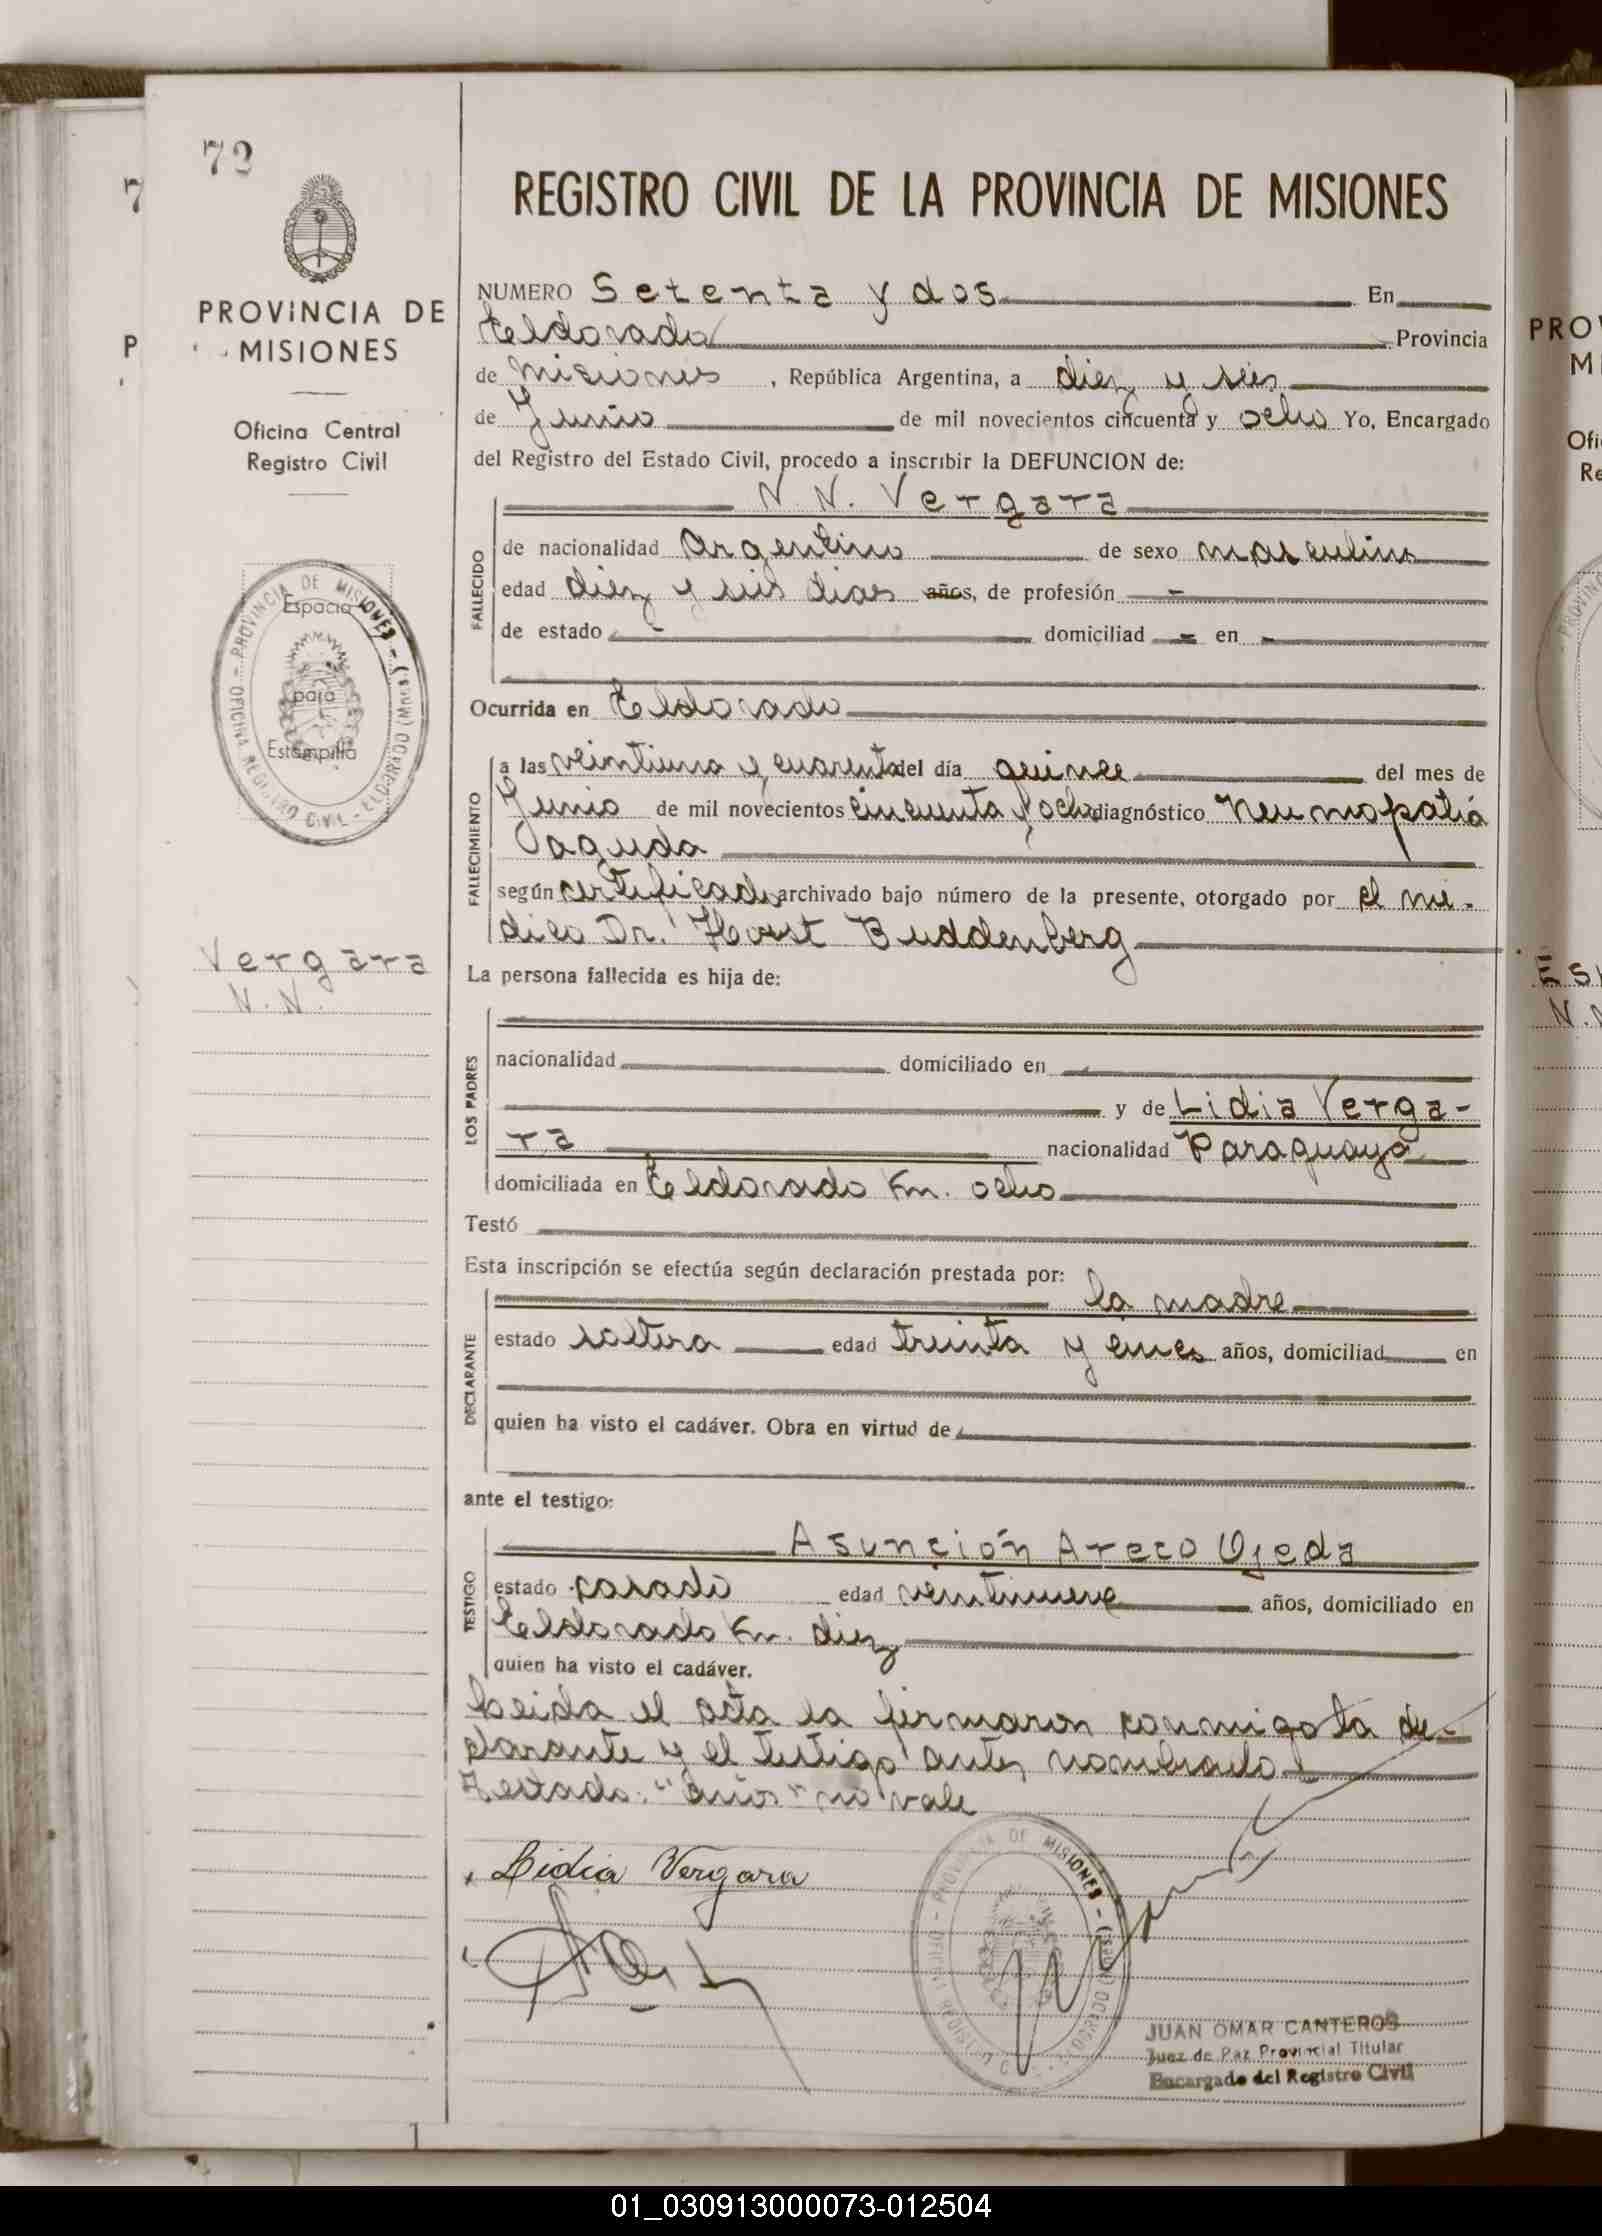 72
PROVINCIA DE
MISIONES
Oficina Central
Registro Civil
OFICINA REGISTRO CIVIL - ELDORADO (Mnes.) - PROVINCIA DE MISIONES -
Espacio
para
Estampilla
Vergara
N. N.
REGISTRO CIVIL DE LA PROVINCIA DE MISIONES
NUMERO Setenta y dos En
Eldorado Provincia
de Misiones, República Argentina, a diez y seis
de Junio de mil novecientos cincuenta y ocho Yo, Encargado
del Registro del Estado Civil, procedo a inscribir la DEFUNCION de:
N. N. Vergara
FALLECIDO
de nacionalidad Argentino de sexo masculino
edad diez y seis dias años, de profesión -
de estado - domiciliad - en -
Ocurrida en Eldorado
FALLECIMIENTO
a las veintiuna y cuarenta del día quince del mes de
Junio de mil novecientos cincuenta y ocho diagnóstico Neumopatía
aguda
según certificado archivado bajo número de la presente, otorgado por el mé-
dico Dr. Horst Buddenberg
La persona fallecida es hija de:
LOS PADRES
nacionalidad domiciliado en
y de Lidia Verga-
ra nacionalidad Paraguaya
domiciliada en Eldorado Km. ocho
Testó
Esta inscripción se efectúa según declaración prestada por:
la madre
DECLARANTE
estado soltera edad treinta y cinco años, domiciliad en
quien ha visto el cadáver. Obra en virtud de
ante el testigo:
Asunción Areco Ojeda
TESTIGO
estado casado edad veintinueve años, domiciliado en
Eldorado Km. diez
quien ha visto el cadáver.
Leida el acta la firmaron conmigo la de-
clarante y el testigo antes nombrado
Testado: "años" no vale
Lidia Vergara
PROVINCIA DE MISIONES - (Mnes.)
JUAN OMAR CANTEROS
Juez de Paz Provincial Titular
Encargado del Registro Civil
PROV
MI
Ofi
Re
N. N
01_030913000073-012504